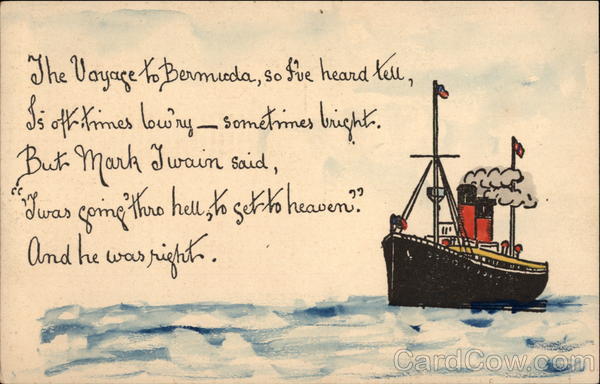 The Voyage to Bermuda, so I've heard tell,
Is oft-times low'ry — sometimes bright.
But Mark Twain said,
"'Twas going thro hell, to get to heaven".
And he was right.
CardCow.com